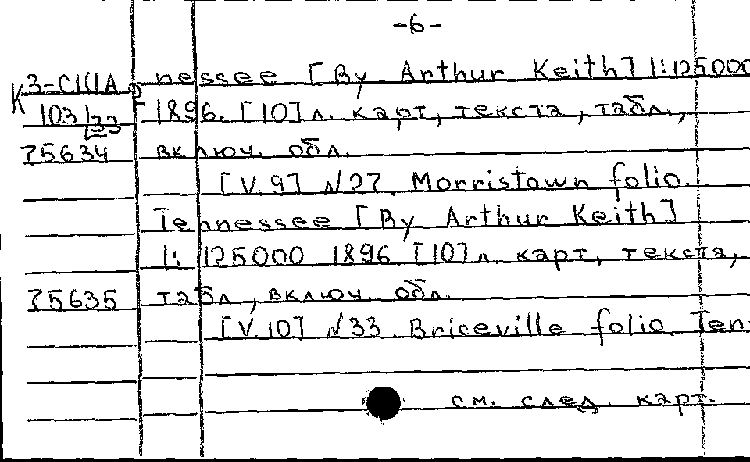 -6-
К 3-США nessee [By Arthur Keith] 1:125000
103/33 1896. [10] л. карт, текста, табл.,
75634 включ. обл.
[V. 9] №27. Morristown folio.
Tennessee [By Arthur Keith]
1: 125000 1896 [10] л. карт, текста,
75635 табл, включ. обл.
[V. 10] №33. Briceville folio. Ten-
см. след. карт.